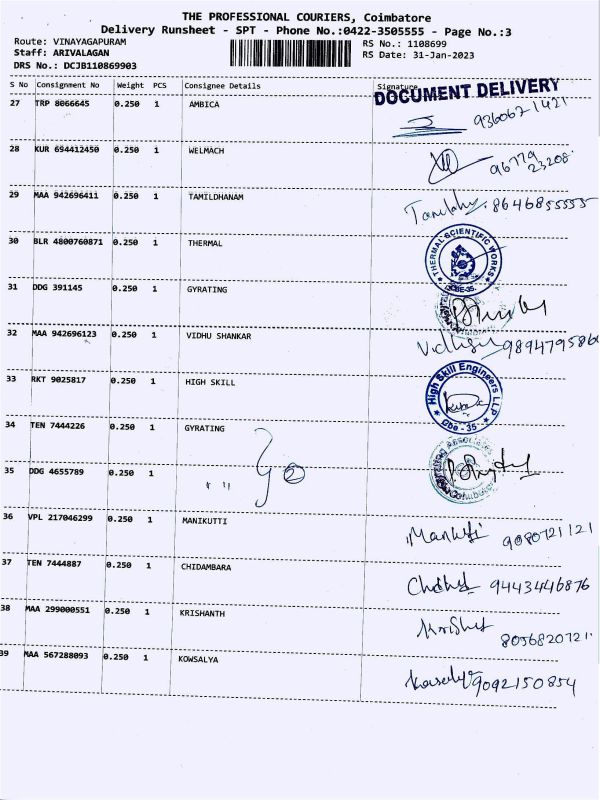 THE PROFESSIONAL COURIERS, Coimbatore
Delivery Runsheet - SPT - Phone No.:0422-3505555 - Page No.:3
Route: VINAYAGAPURAM RS No.: 1108699
Staff: ARIVALAGAN RS Date: 31-Jan-2023
DRS No.: DCJB110869903
S No Consignment No Weight PCS Consignee Details Signature
DOCUMENT DELIVERY
27 TRP 8066645 0.250 1 AMBICA 9360671421
28 KUR 694412450 0.250 1 WELMACH 96779 23208
29 MAA 942696411 0.250 1 TAMILDHANAM 8646855555
30 BLR 4800760871 0.250 1 THERMAL THERMAL SCIENTIFIC WORKS CBE-35.
31 DDG 391145 0.250 1 GYRATING
32 MAA 942696123 0.250 1 VIDHU SHANKAR 9894795860
33 RKT 9025817 0.250 1 HIGH SKILL High Skill Engineers LLP Cbe - 35.
34 TEN 7444226 0.250 1 GYRATING
35 DDG 4655789 0.250 1
36 VPL 217046299 0.250 1 MANIKUTTI 9080721121
37 TEN 7444887 0.250 1 CHIDAMBARA 9443446876
38 MAA 299000551 0.250 1 KRISHANTH 8056820721
39 MAA 567288093 0.250 1 KOWSALYA 9092150854